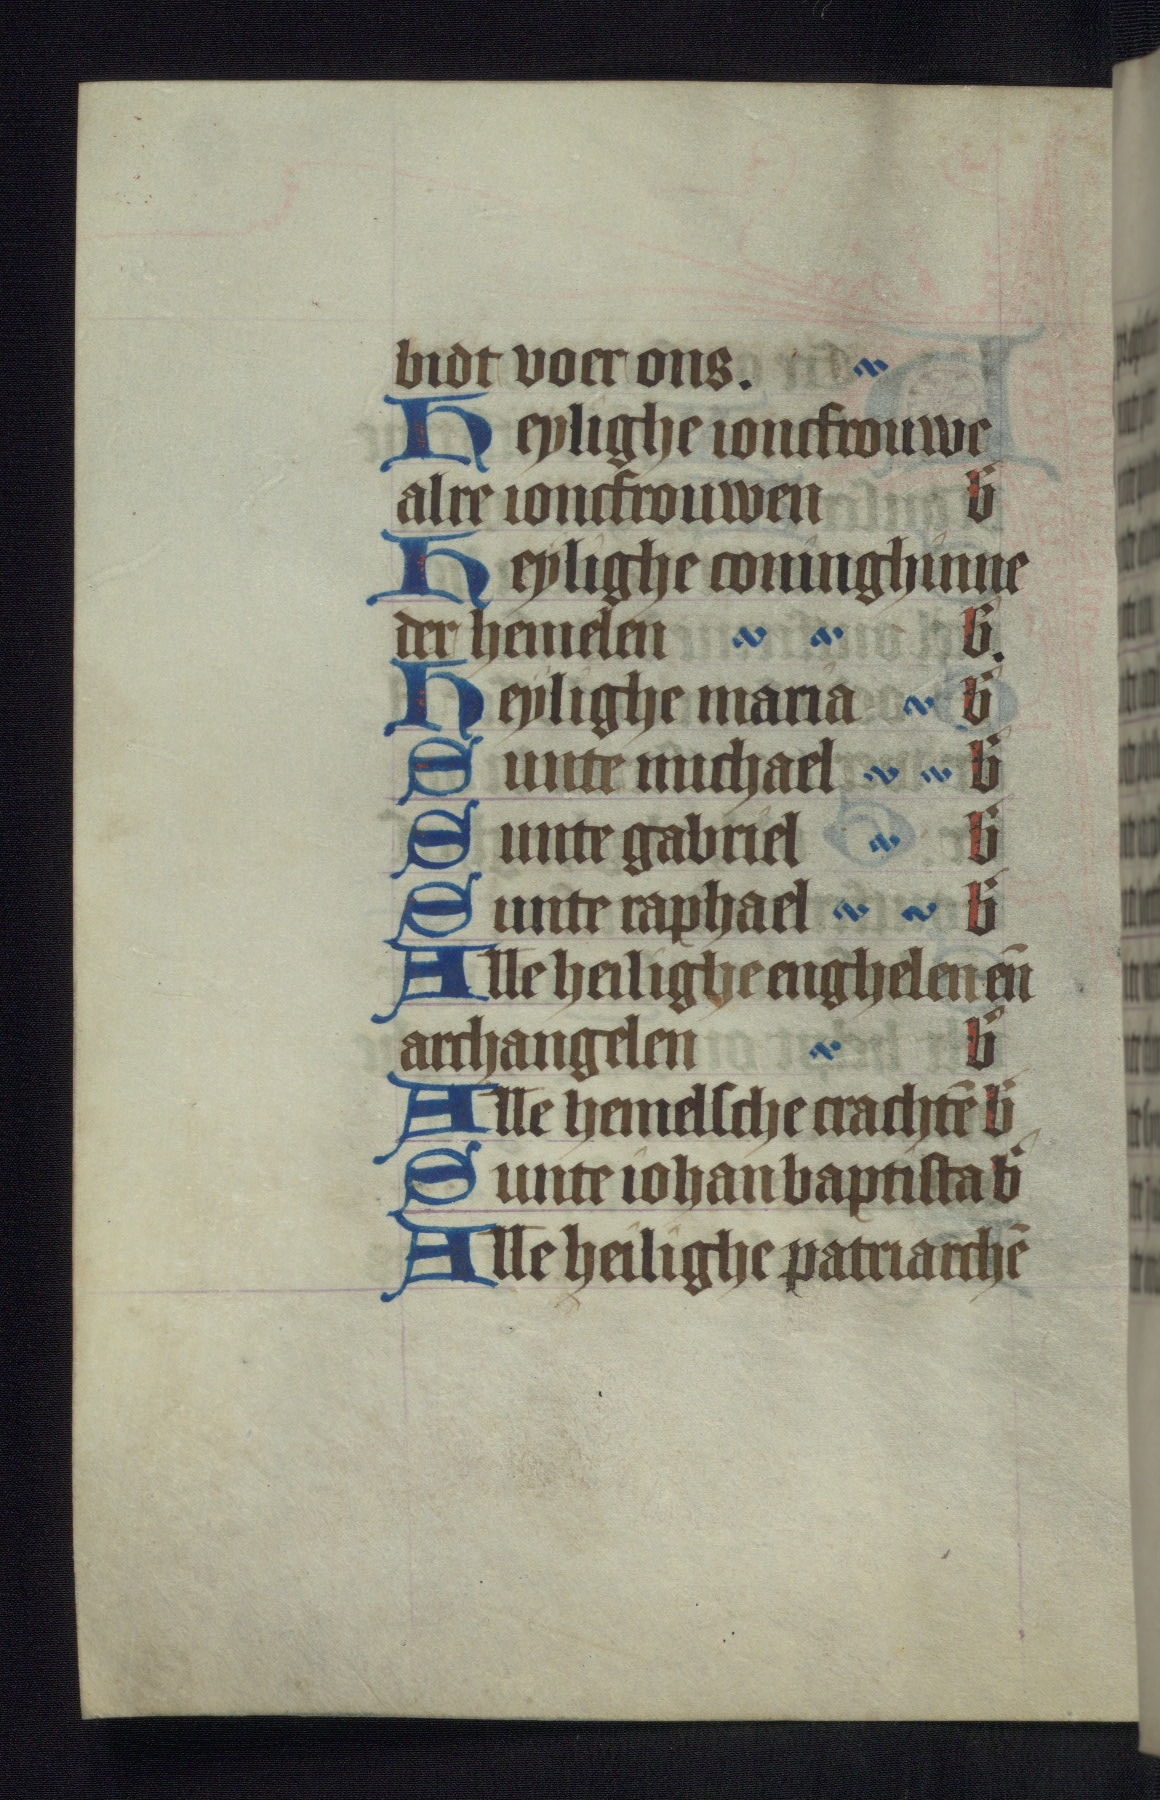 bidt voer ons.
Heylighe ioncfrouwe
alre ioncfrouwen b̄
Heylighe coninghinne
der hemelen b̄.
Heylighe maria b̄
Sunte michael b̄
Sunte gabriel b̄
Sunte raphael b̄
Alle heilighe enghelen en̄
archangelen b̄
Alle hemelſche crachtē b̄
Sunte iohan baptiſta b̄
Alle heilighe patriarchē